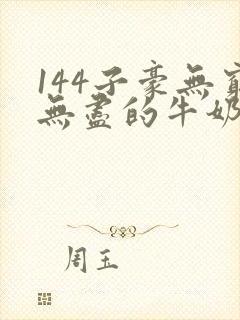 144子豪無窮
無盡的牛奶
周玉